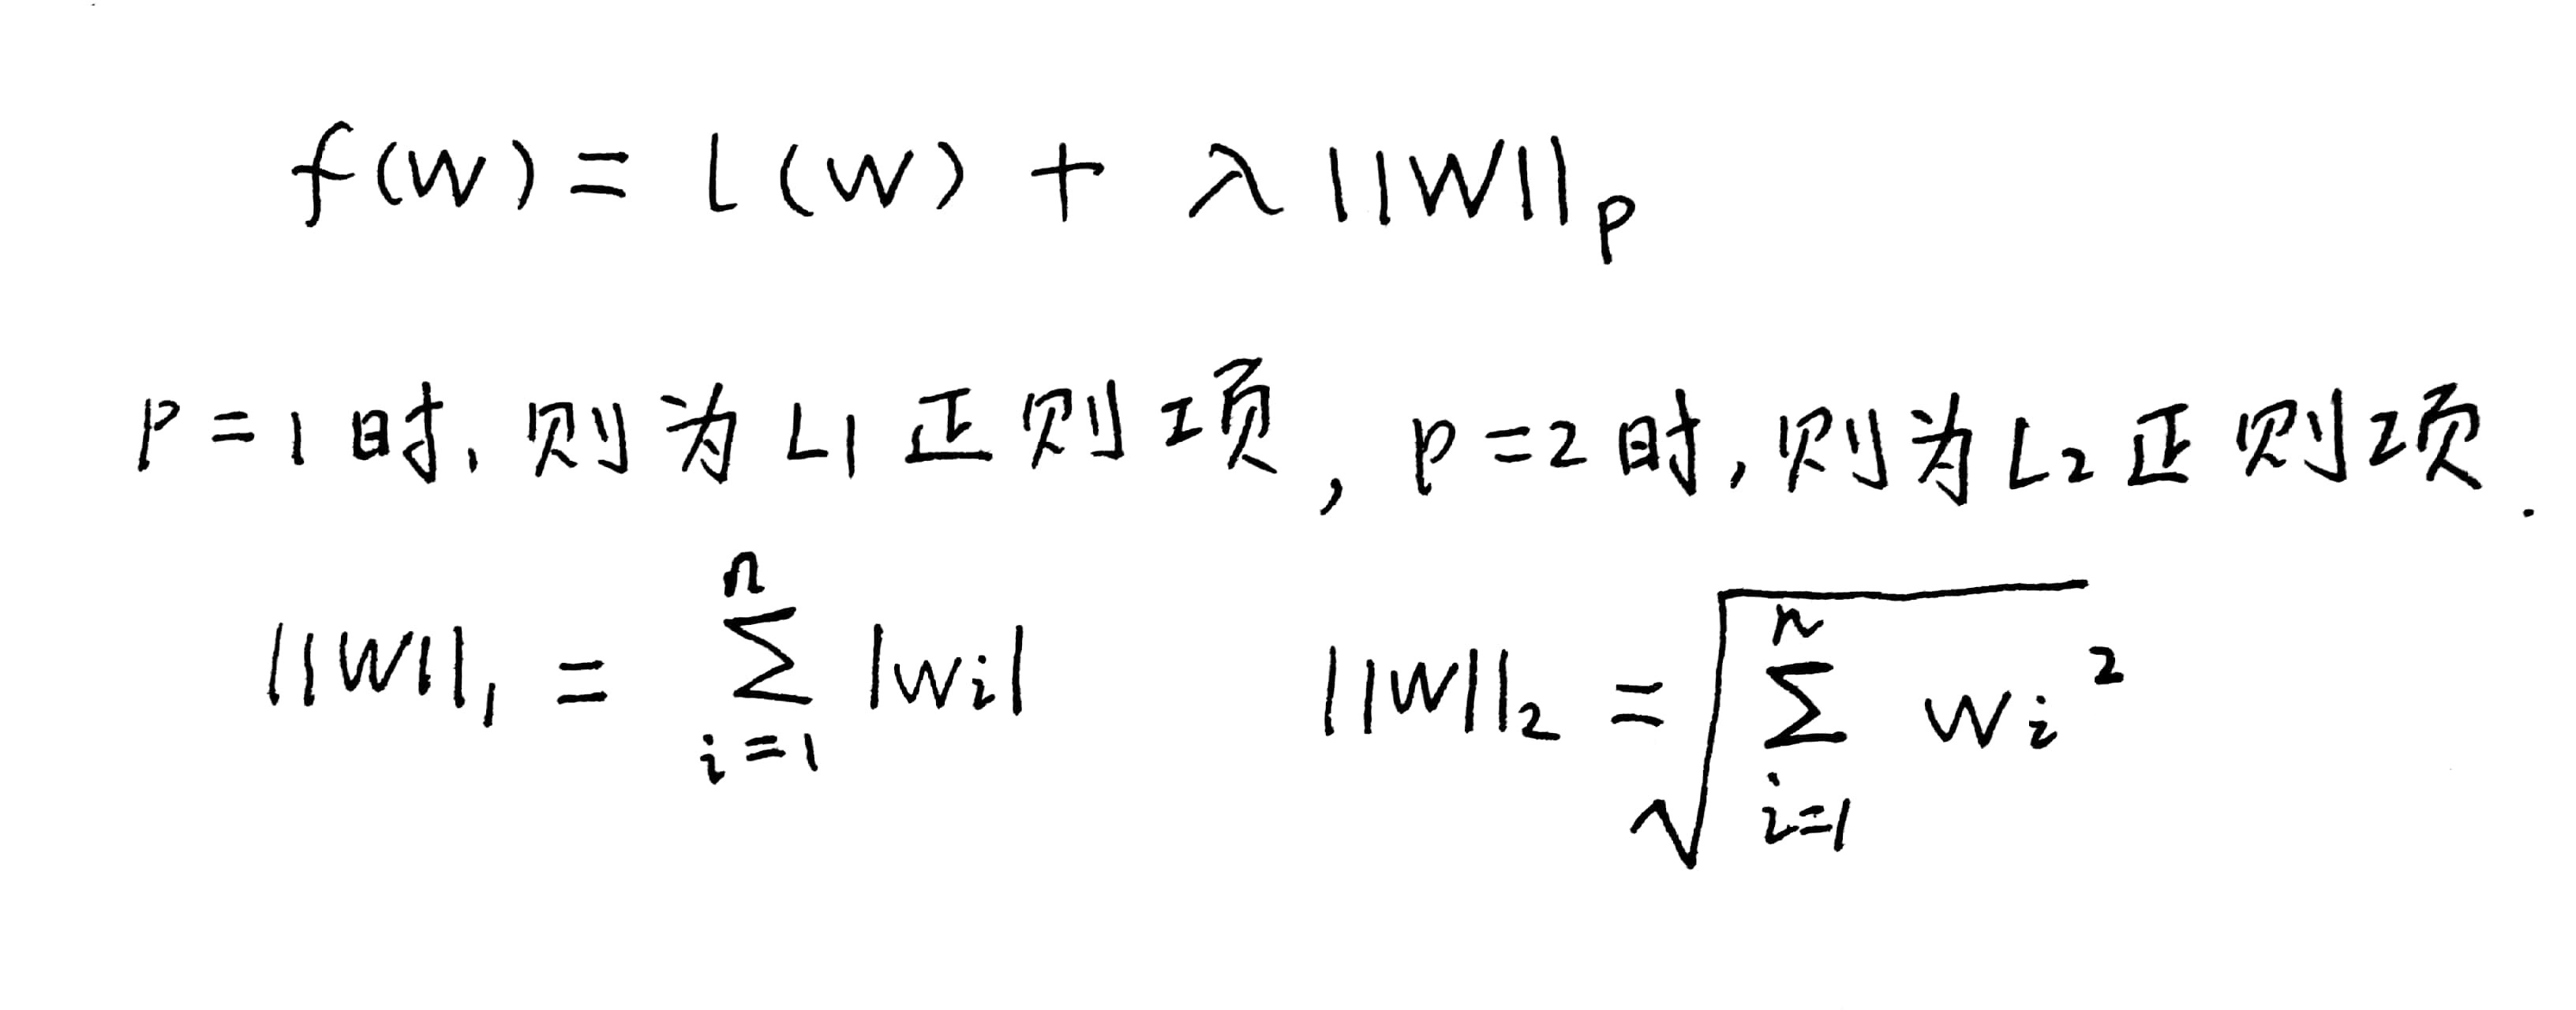 f(W) = L(W) + λ||W||p
P=1时,则为L1正则项,p=2时,则为L2正则项.
||W||₁ = ∑ⁿᵢ₌₁ |wi| ||W||₂ = √∑ⁿᵢ₌₁ wi²